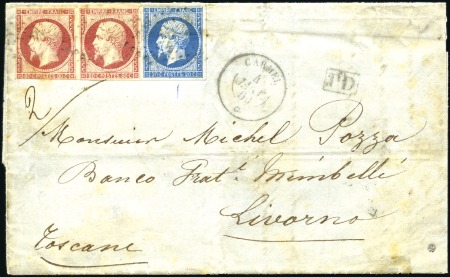 EMPIRE FRANC. EMPIRE FRANC. EMPIRE FRANC.
80 C. POSTES 80 C. 80 C. POSTES 80 C. 20 C. POSTES 20 C.
PD
2/
Monsieur Michel Pozza
Banco Fratt. Mimbelli
Livorno
Toscane